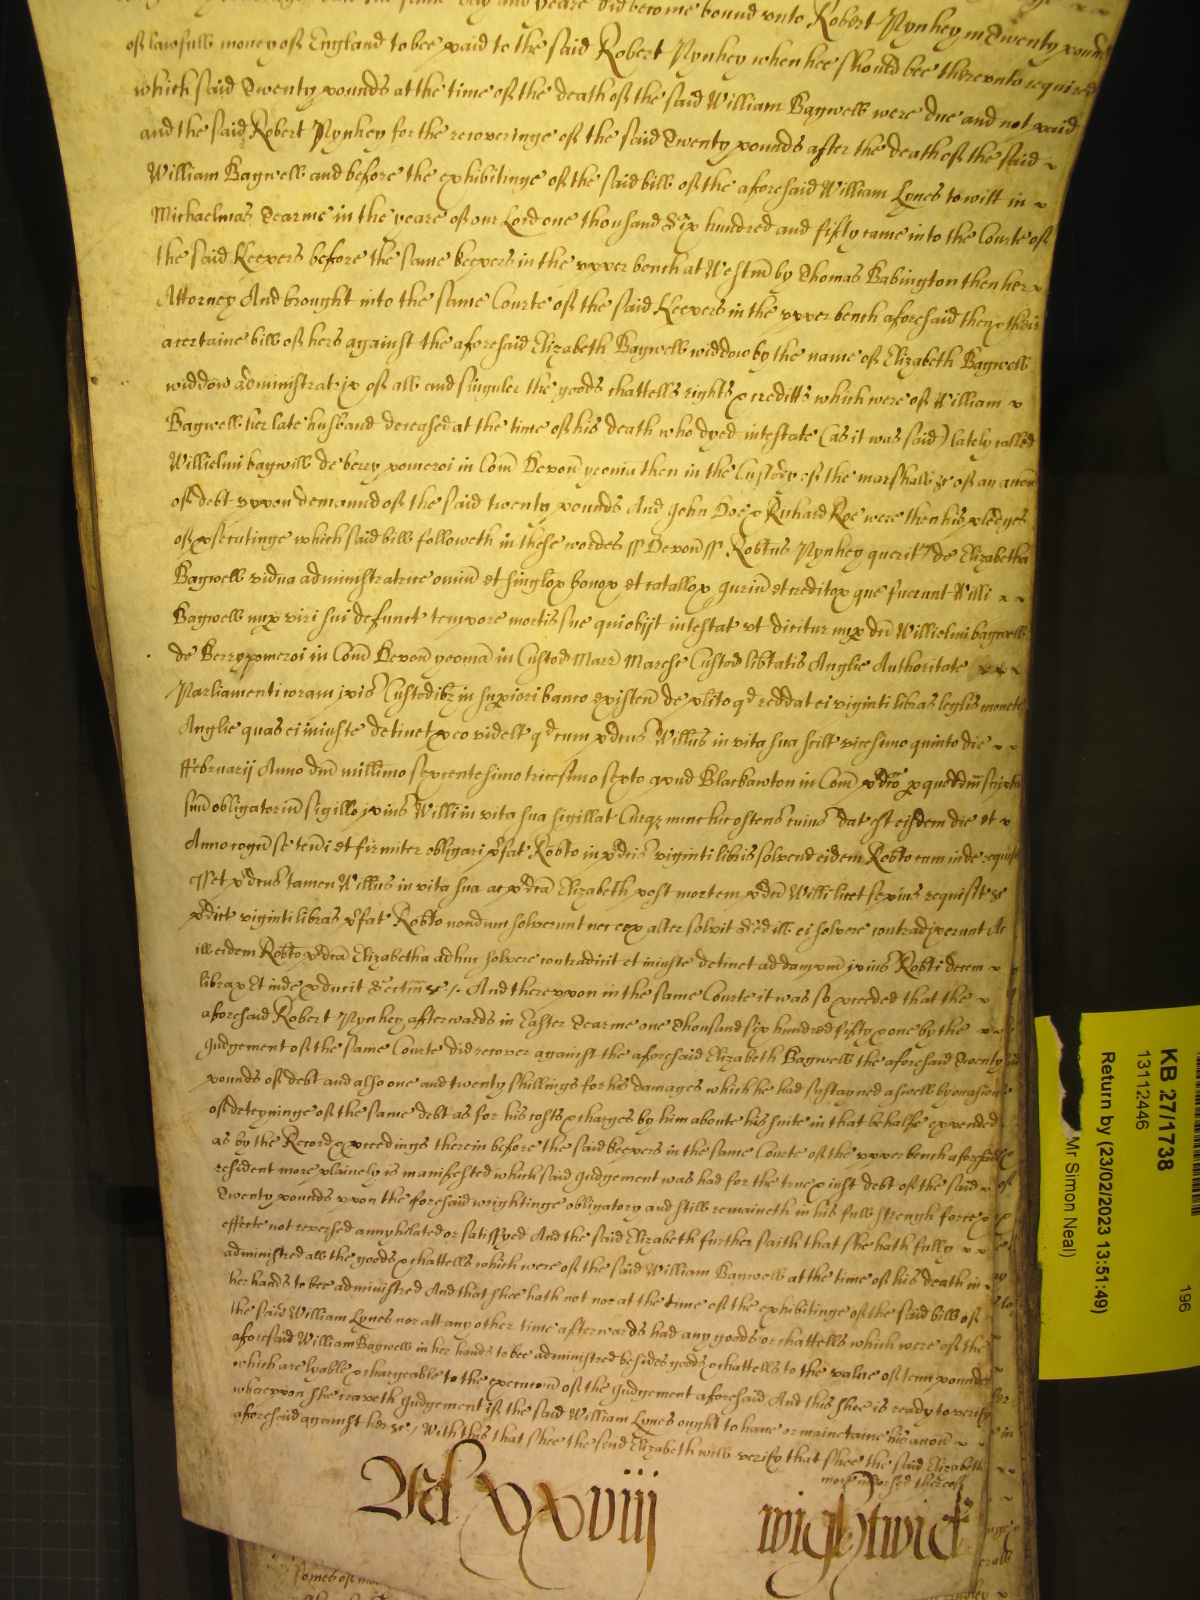 day and yeare did become bound vnto Robert Nynhey in Twenty pounds
of lawfull money of England to bee paid to the said Robert Nynhey when hee should bee therevnto required
which said Twenty pounds at the time of the death of the said William Bagwell were due and not paid
and the said Robert Nynhey for the recoveringe of the said Twenty pounds after the death of the said
William Bagwell and before the exhibitinge of the said bill of the aforesaid William Lynes to witt in
Michaelmas Tearme in the yeare of our Lord one thousand Six hundred and fifty came into the Courte of
the said Keepers before the same keepers in the vpper bench at Westm by Thomas Babington then her
Attorney And brought into the same Courte of the said Keepers in the vpper bench aforesaid then & there
a certaine bill of hers against the aforesaid Elizabeth Bagwell widdow by the name of Elizabeth Bagwell
widdow administratrix of all and singuler the goods chattells rights & creditts which were of William
Bagwell her late husband deceased at the time of his death who dyed intestate (as it was said) lately called
Willielmi bagwill de berry pomeroi in Com Devon yeoman then in the Custody of the marshall &c of an accon
of debt vppon demaund of the said twenty pounds And John Doe & Richard Roe were then his pledges
of psecutinge which said bill followeth in these wordes ss Devon ss Robtus Nynhey querit de Elizabetha
Bagwell vidua administratrice omniu et singlor bonor et catallor Juriu et creditor que fuerunt Willi
Bagwell nup viri sui defunct tempore mortis sue qui obijt intestat vt dicitur nup dci Willielmi bagwell
de Berrypomeroi in Com Devon yeoman in Custod Marr Maresc Custod libtatis Anglie Authoritate
Parliamenti coram ipis Custodibz in supiori banco existen de plito qd reddat ei viginti libras leglis monete
Anglie quas ei iniuste detinet p eo videlt qd cum pdcus Willus in vita sua scilt vicesimo quinto die
ffebruarij Anno dni millimo sexcentesimo tricesimo sexto apud Blackawton in Com pdco p quoddm scriptu
suu obligatoriu sigillo ipius Willi in vita sua sigillat Cureqz nunc hic ostens cuius dat est eisdem die et
Anno cogn se teneri et firmiter obligari pfat Robto in pdcis viginti libris solvend eidem Robto cum inde requisit
esset pdcus tamen Willus in vita sua ac pdca Elizabeth post mortem pdci Willi licet sepius requisit &c
pdict viginti libras pfat Robto nondum solverunt nec eor alter solvit Sed ill ei solvere contradixerunt Ac
ill eidem Robto pdca Elizabetha adhuc solvere contradicit et iniuste detinet ad dampnu ipius Robti decem
librar Et inde pducit Sectam &c /. And therevpon in the same Courte it was so pceeded that the
aforesaid Robert Nynhey afterwards in Easter Tearme one Thousand six hundred fifty & one by the
Judgement of the same Courte did recover against the aforesaid Elizabeth Bagwell the aforesaid Twenty
pounds of debt and also one and twenty shillings for his damages which he had sustayned aswell by occasion
of deteyninge of the same debt as for his costs & charges by him aboute his suite in that behalfe expended
as by the Record & pceedings therein before the said keepers in the same Courte of the vpper bench aforesaid
resident more plainely is manifested which said Judgement was had for the true & iust debt of the said
Twenty pounds vpon the foresaid wrightinge obligatory and still remaineth in his full strengh force &
effecte not reversed annyhilated or satisfyed And the said Elizabeth further saith that she hath fully
administred all the goods & chattells which were of the said William Bagwell at the time of his death in
her hands to bee administred And that shee hath not nor at the time of the exhibitinge of the said bill of
the said William Lynes nor att any other time afterwards had any goods or chattells which were of the
aforesaid William Bagwell in her hands to bee administred besides goods & chattells to the value of tenn pounds
which are lyable & chargeable to the execucon of the Judgement aforesaid And this shee is ready to verify
wherevpon she craveth Judgement if the said William Lynes ought to have or mainetaine his accon
aforesaid against her &c / With this that shee the said Elizabeth will verify that shee the said Elizabeth
more indorsed thereof
Ad xxviij wightwick
KB 27/1738
13112446
Return by (23/02/2023 13:51:49)
Mr Simon Neal)
196